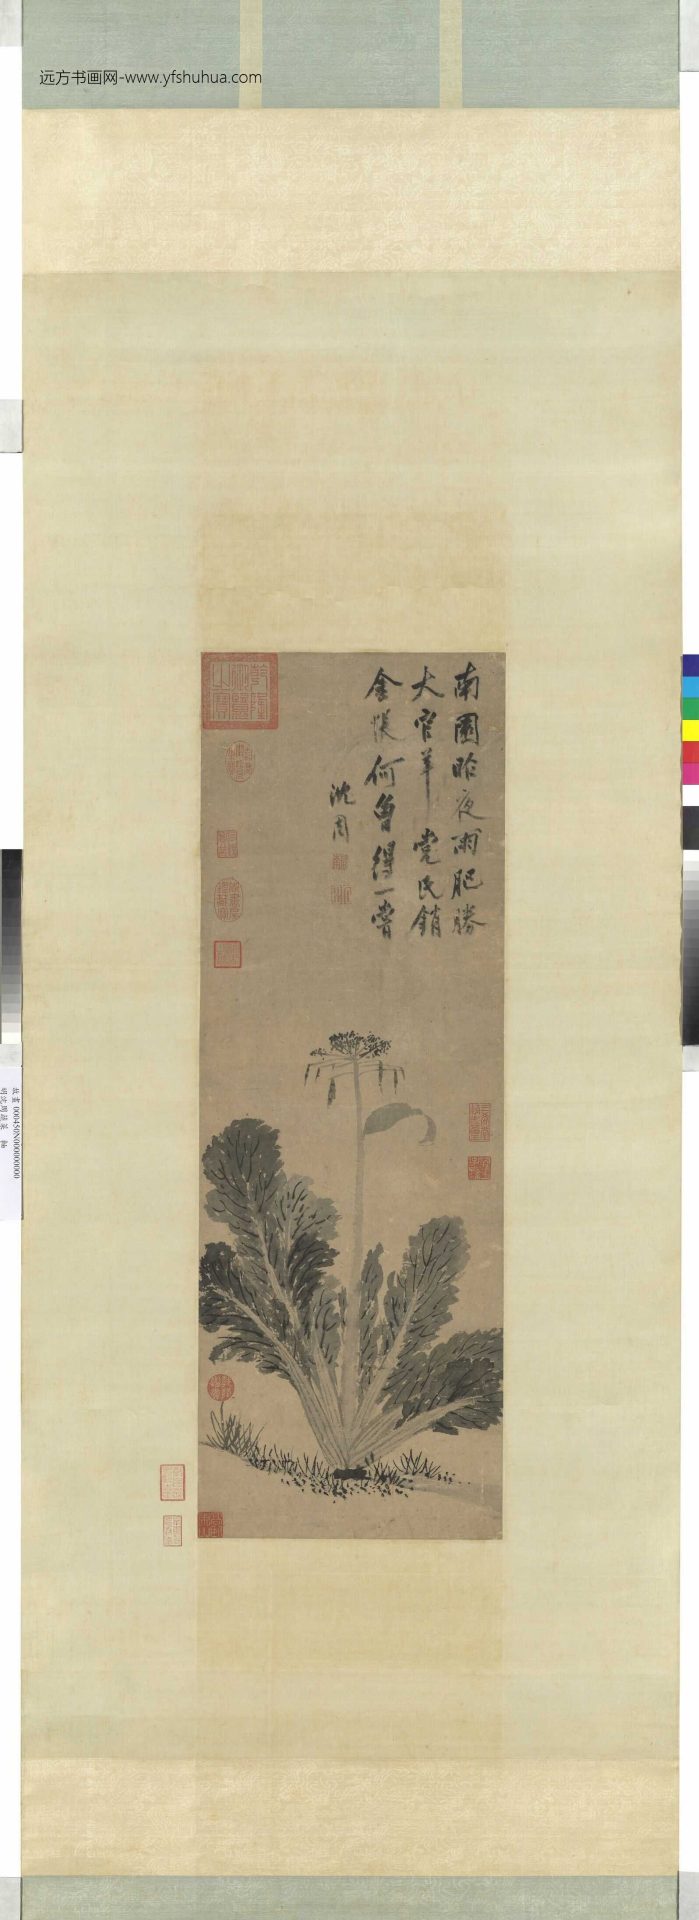 远方书画网-www.yfshuhua.com
南園昨夜雨肥勝
大官羊党氏銷
金帳何曾得一嘗
沈周
故畫 000450N000000000
明沈周蔬菜 軸